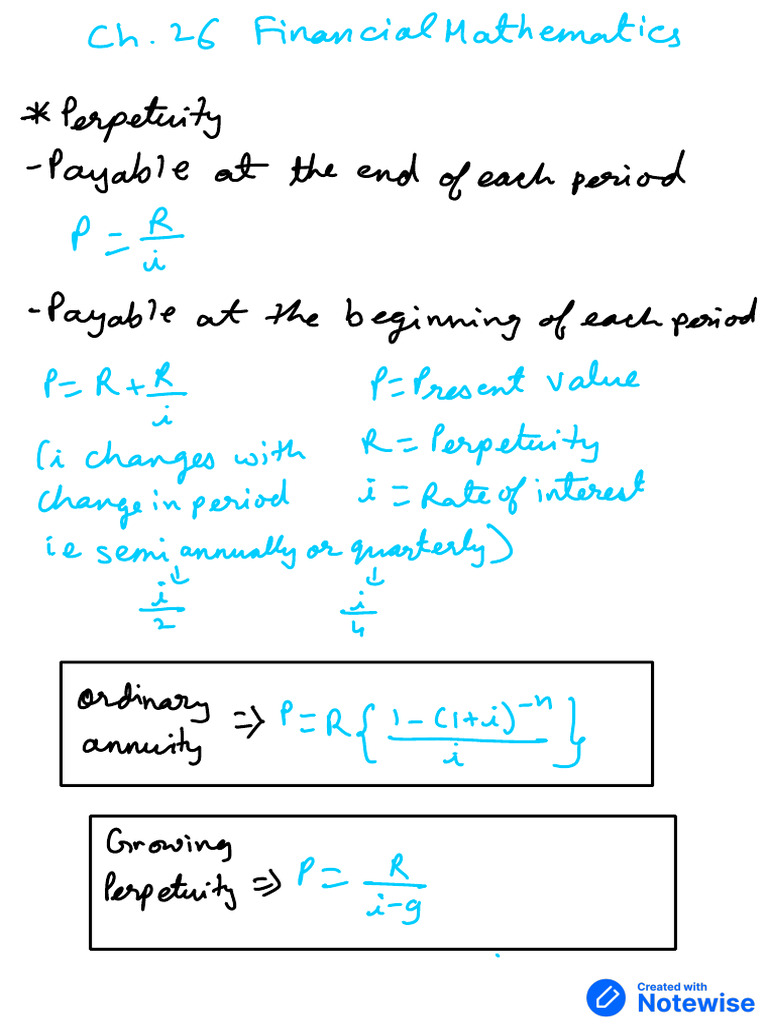 Ch. 26 Financial Mathematics
* Perpetuity
- Payable at the end of each period
P = R/i
- Payable at the beginning of each period
P = R + R/i
P = Present value
(i changes with
R = Perpetuity
change in period
i = Rate of interest
ie semi annually or quarterly)
↓ ↓
i/2 i/4
ordinary
annuity ⇒ P = R { 1 - (1+i)^-n / i }
Growing
Perpetuity ⇒ P = R / i-g
Created with
Notewise